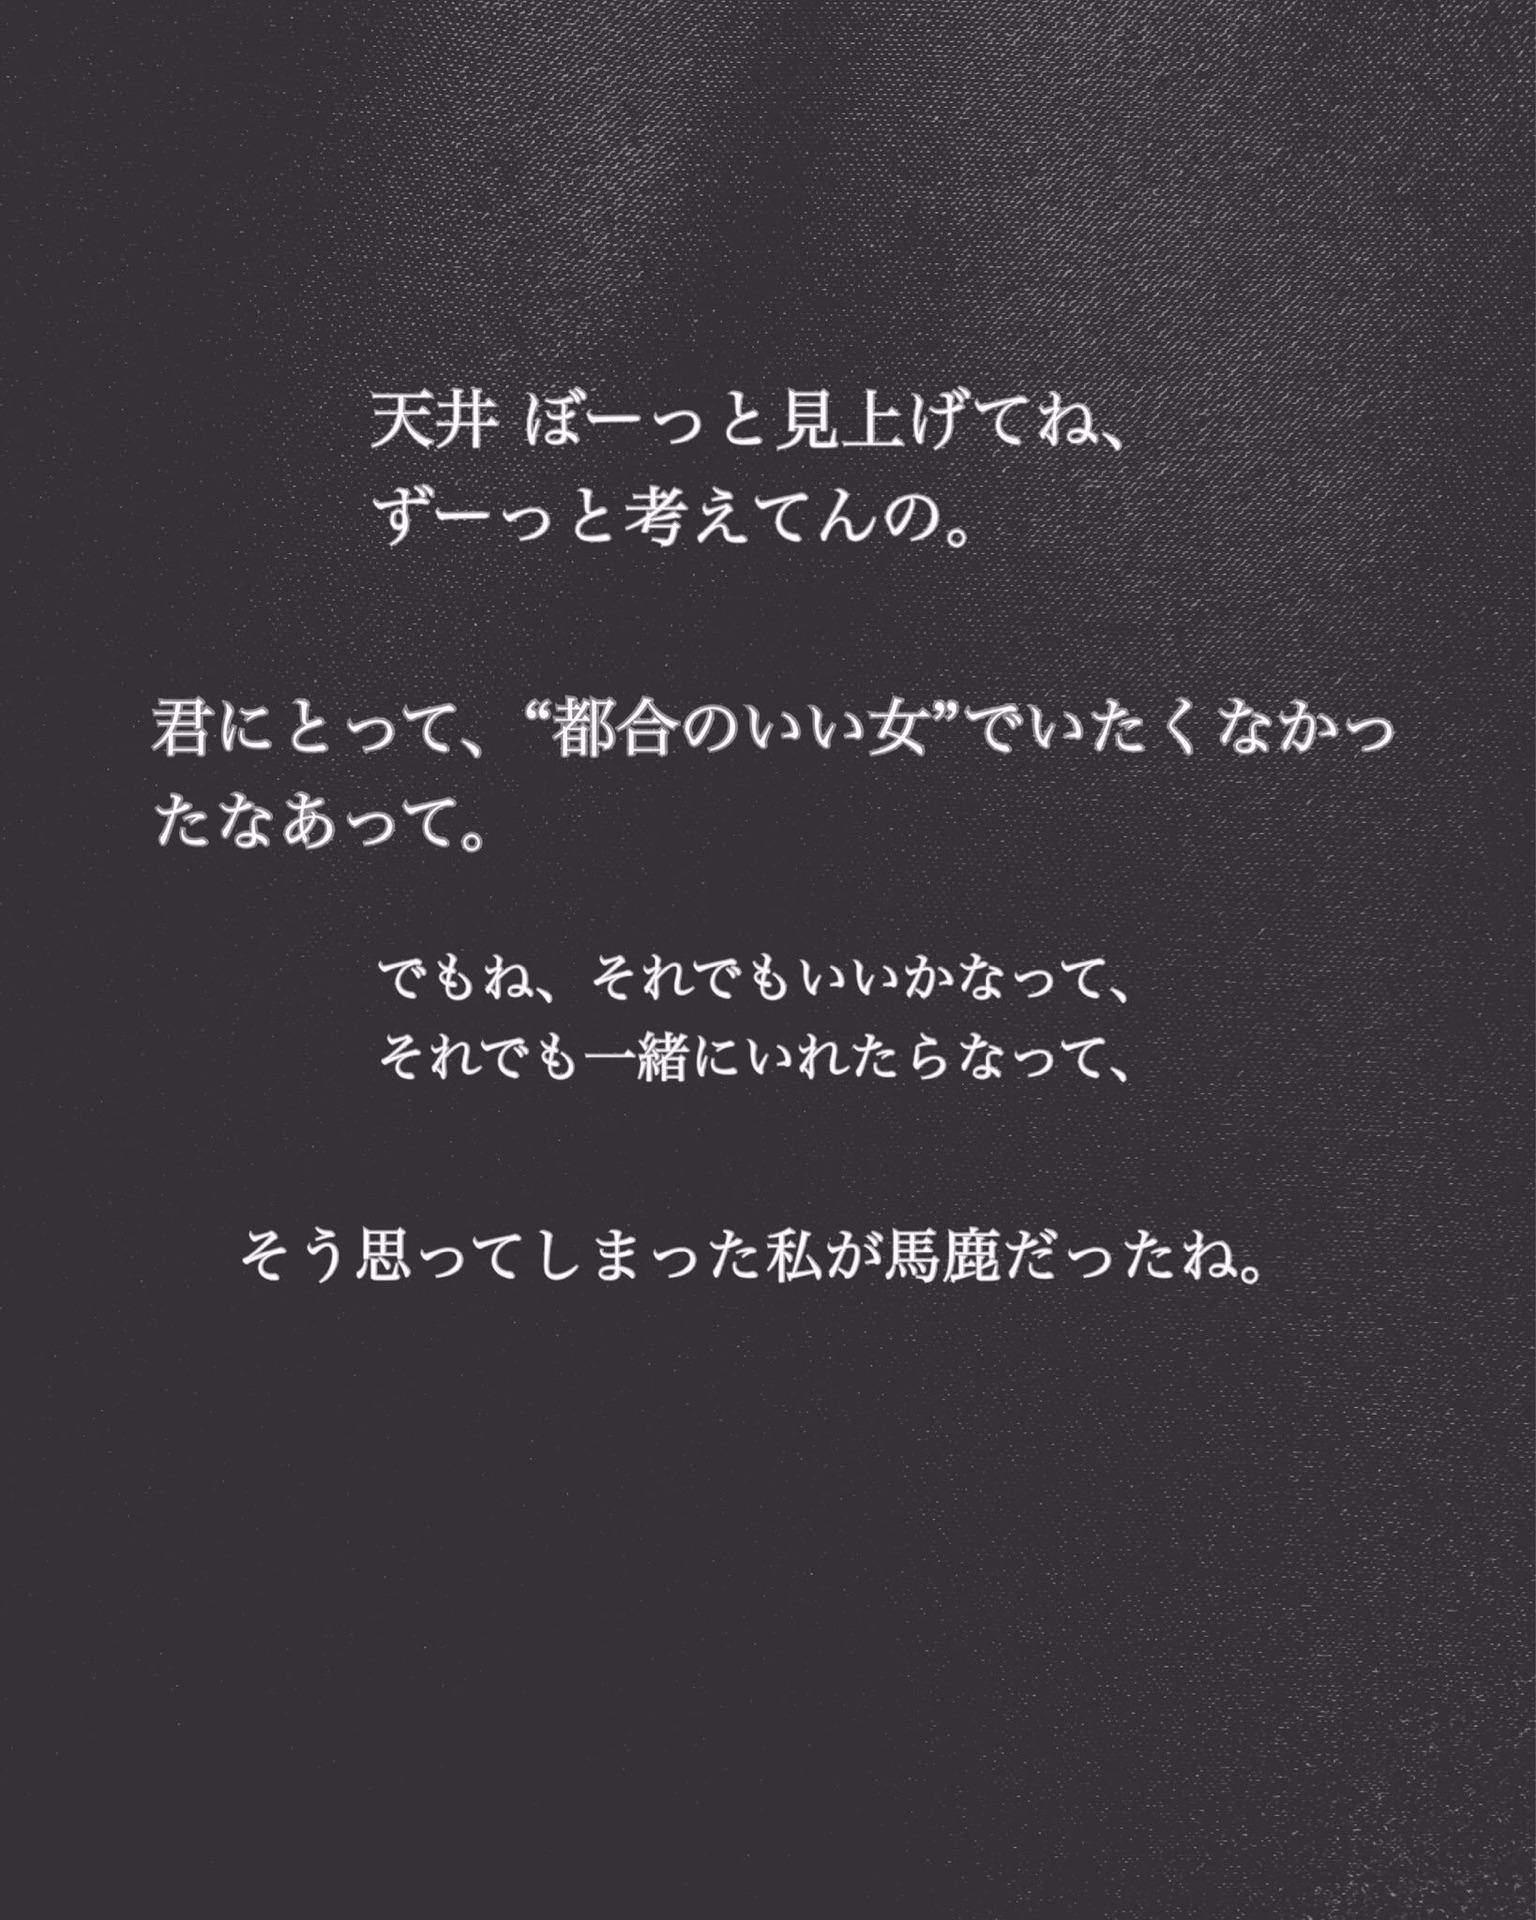 天井 ぼーっと見上げてね、
ずーっと考えてんの。
君にとって、“都合のいい女”でいたくなかっ
たなあって。
でもね、それでもいいかなって、
それでも一緒にいれたらなって、
そう思ってしまった私が馬鹿だったね。